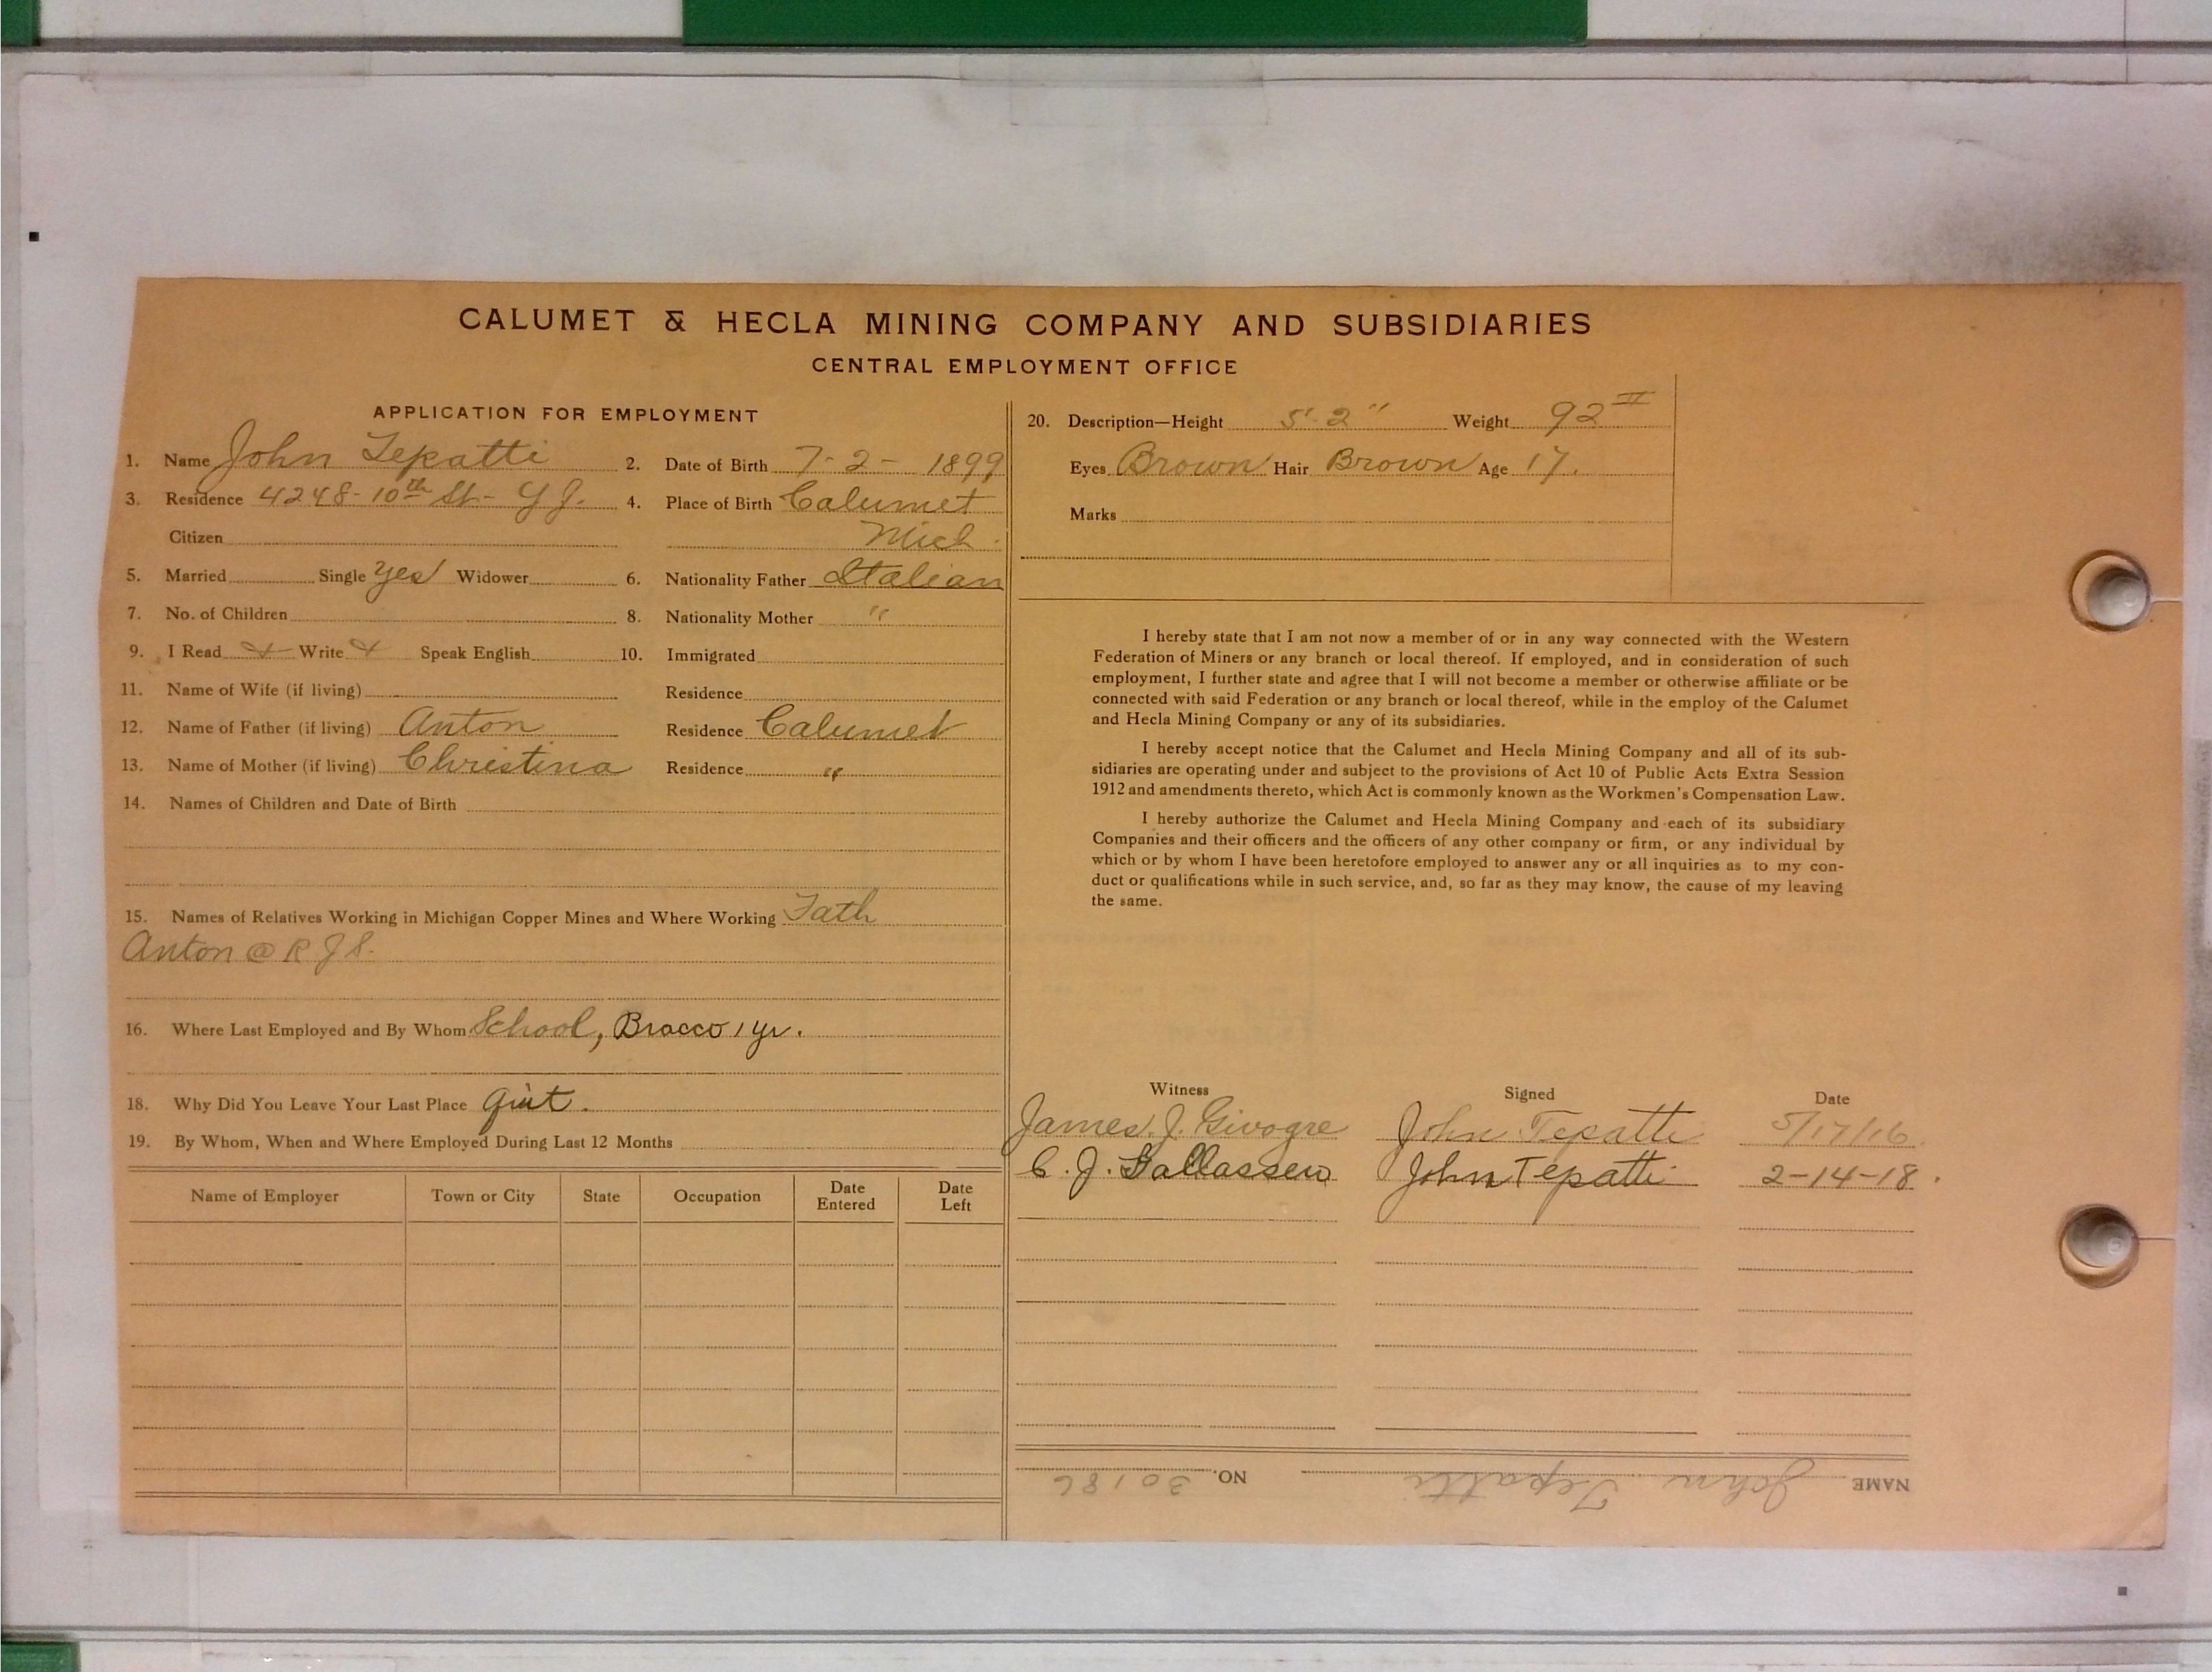 CALUMET & HECLA MINING COMPANY AND SUBSIDIARIES
CENTRAL EMPLOYMENT OFFICE
APPLICATION FOR EMPLOYMENT
1. Name John Tepatti 2. Date of Birth 7-2-1899
3. Residence 4248-10th St- Y J. 4. Place of Birth Calumet
Citizen Mich.
5. Married Single yes Widower 6. Nationality Father Italian
7. No. of Children 8. Nationality Mother "
9. I Read Write Speak English 10. Immigrated
11. Name of Wife (if living) Residence
12. Name of Father (if living) Anton Residence Calumet
13. Name of Mother (if living) Christina Residence "
14. Names of Children and Date of Birth
15. Names of Relatives Working in Michigan Copper Mines and Where Working Fath
Anton @ R J S.
16. Where Last Employed and By Whom School, Bracco 1 yr.
18. Why Did You Leave Your Last Place quit.
19. By Whom, When and Where Employed During Last 12 Months
Name of Employer Town or City State Occupation Date Entered Date Left
20. Description—Height 5'-2" Weight 92
Eyes Brown Hair Brown Age 17.
Marks
I hereby state that I am not now a member of or in any way connected with the Western
Federation of Miners or any branch or local thereof. If employed, and in consideration of such
employment, I further state and agree that I will not become a member or otherwise affiliate or be
connected with said Federation or any branch or local thereof, while in the employ of the Calumet
and Hecla Mining Company or any of its subsidiaries.
I hereby accept notice that the Calumet and Hecla Mining Company and all of its sub-
sidiaries are operating under and subject to the provisions of Act 10 of Public Acts Extra Session
1912 and amendments thereto, which Act is commonly known as the Workmen's Compensation Law.
I hereby authorize the Calumet and Hecla Mining Company and each of its subsidiary
Companies and their officers and the officers of any other company or firm, or any individual by
which or by whom I have been heretofore employed to answer any or all inquiries as to my con-
duct or qualifications while in such service, and, so far as they may know, the cause of my leaving
the same.
Witness Signed Date
James J. Givogre John Tepatti 5/17/16
C. J. John Tepatti 2-14-18.
NAME John Tepatti NO. 30186